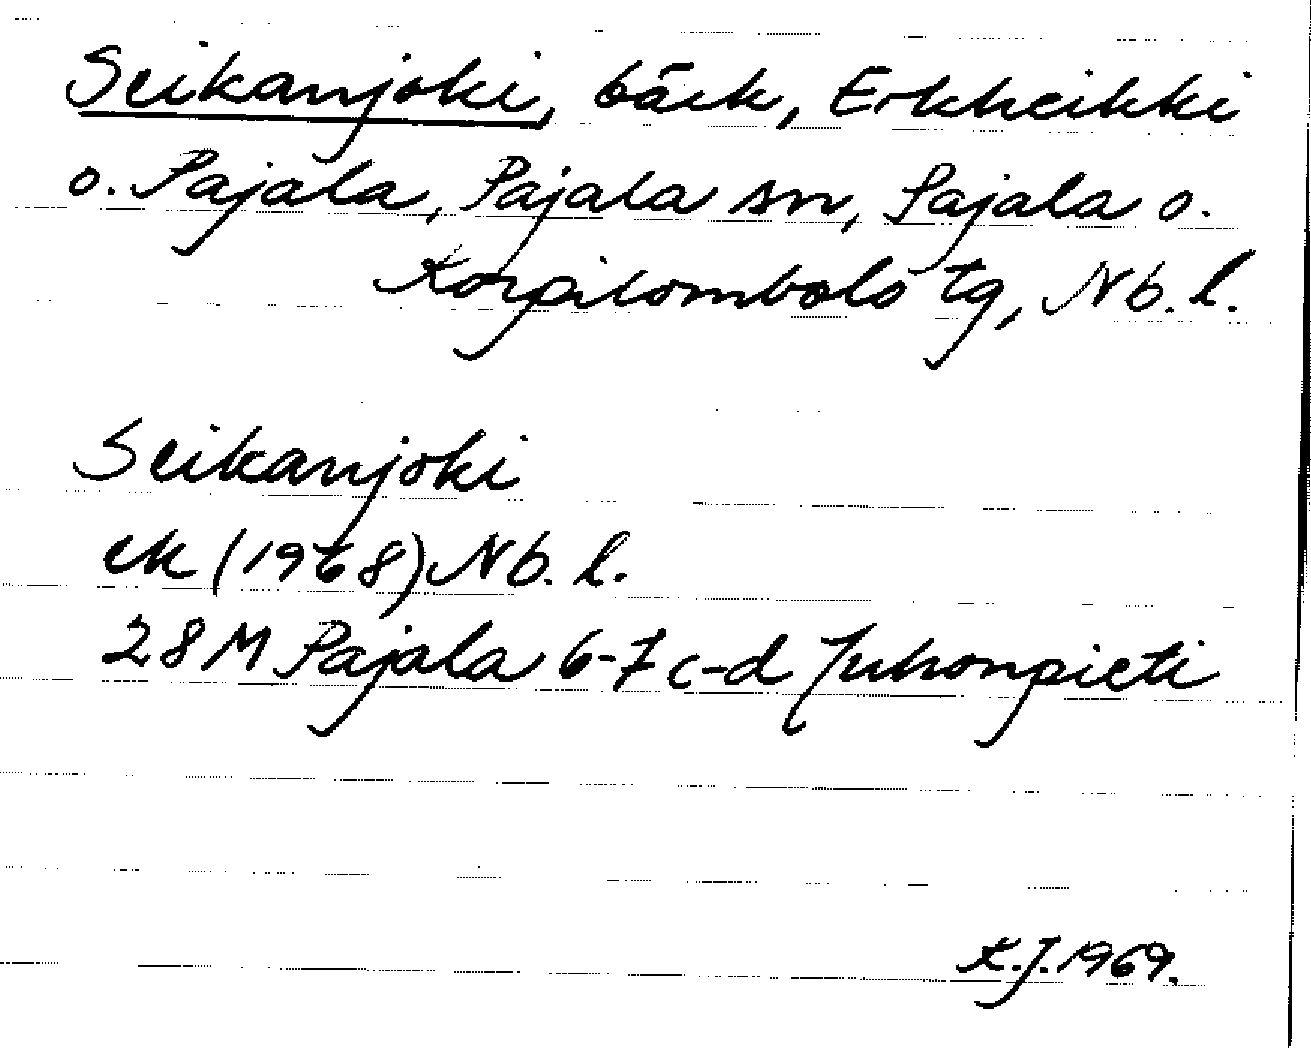 Seikanjoki, bäck, Erkheikki
o. Pajala, Pajala sn, Pajala o.
Korpilombolo tg, Nb. l.
Seikanjoki
ek (1968) Nb. l.
28 M Pajala 6-7 c-d Juhonpieti
K.J. 1969.